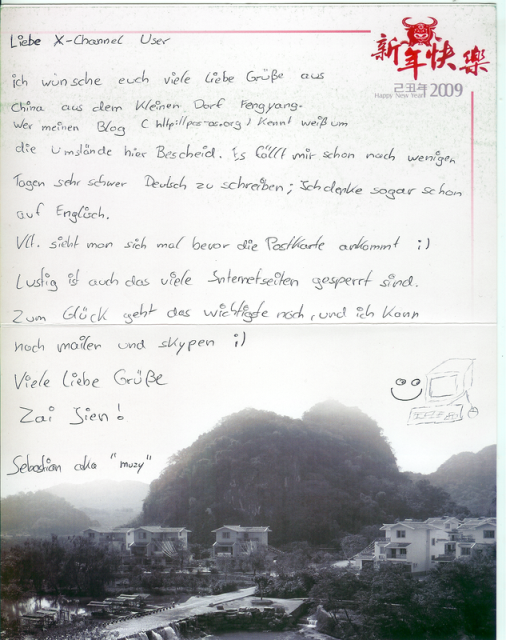 Liebe X-Channel User
新年快樂
己丑年 2009
Happy New Year
ich wünsche euch viele Liebe Grüße aus
China aus dem Kleinen Dorf Fengyang.
Wer meinen Blog ( http://pcz-os.org ) Kennt weiß um
die Umstände hier Bescheid. Es fällt mir schon nach wenigen
Tagen sehr schwer Deutsch zu schreiben; Ich denke sogar schon
auf Englisch.
Vlt. sieht man sich mal bevor die Postkarte ankommt ;)
Lustig ist auch das viele Internetseiten gesperrt sind.
Zum Glück geht das wichtigste noch, und ich kann
noch mailen und skypen ;)
Viele Liebe Grüße
Zai Jien!
Sebastian aka "muzy"